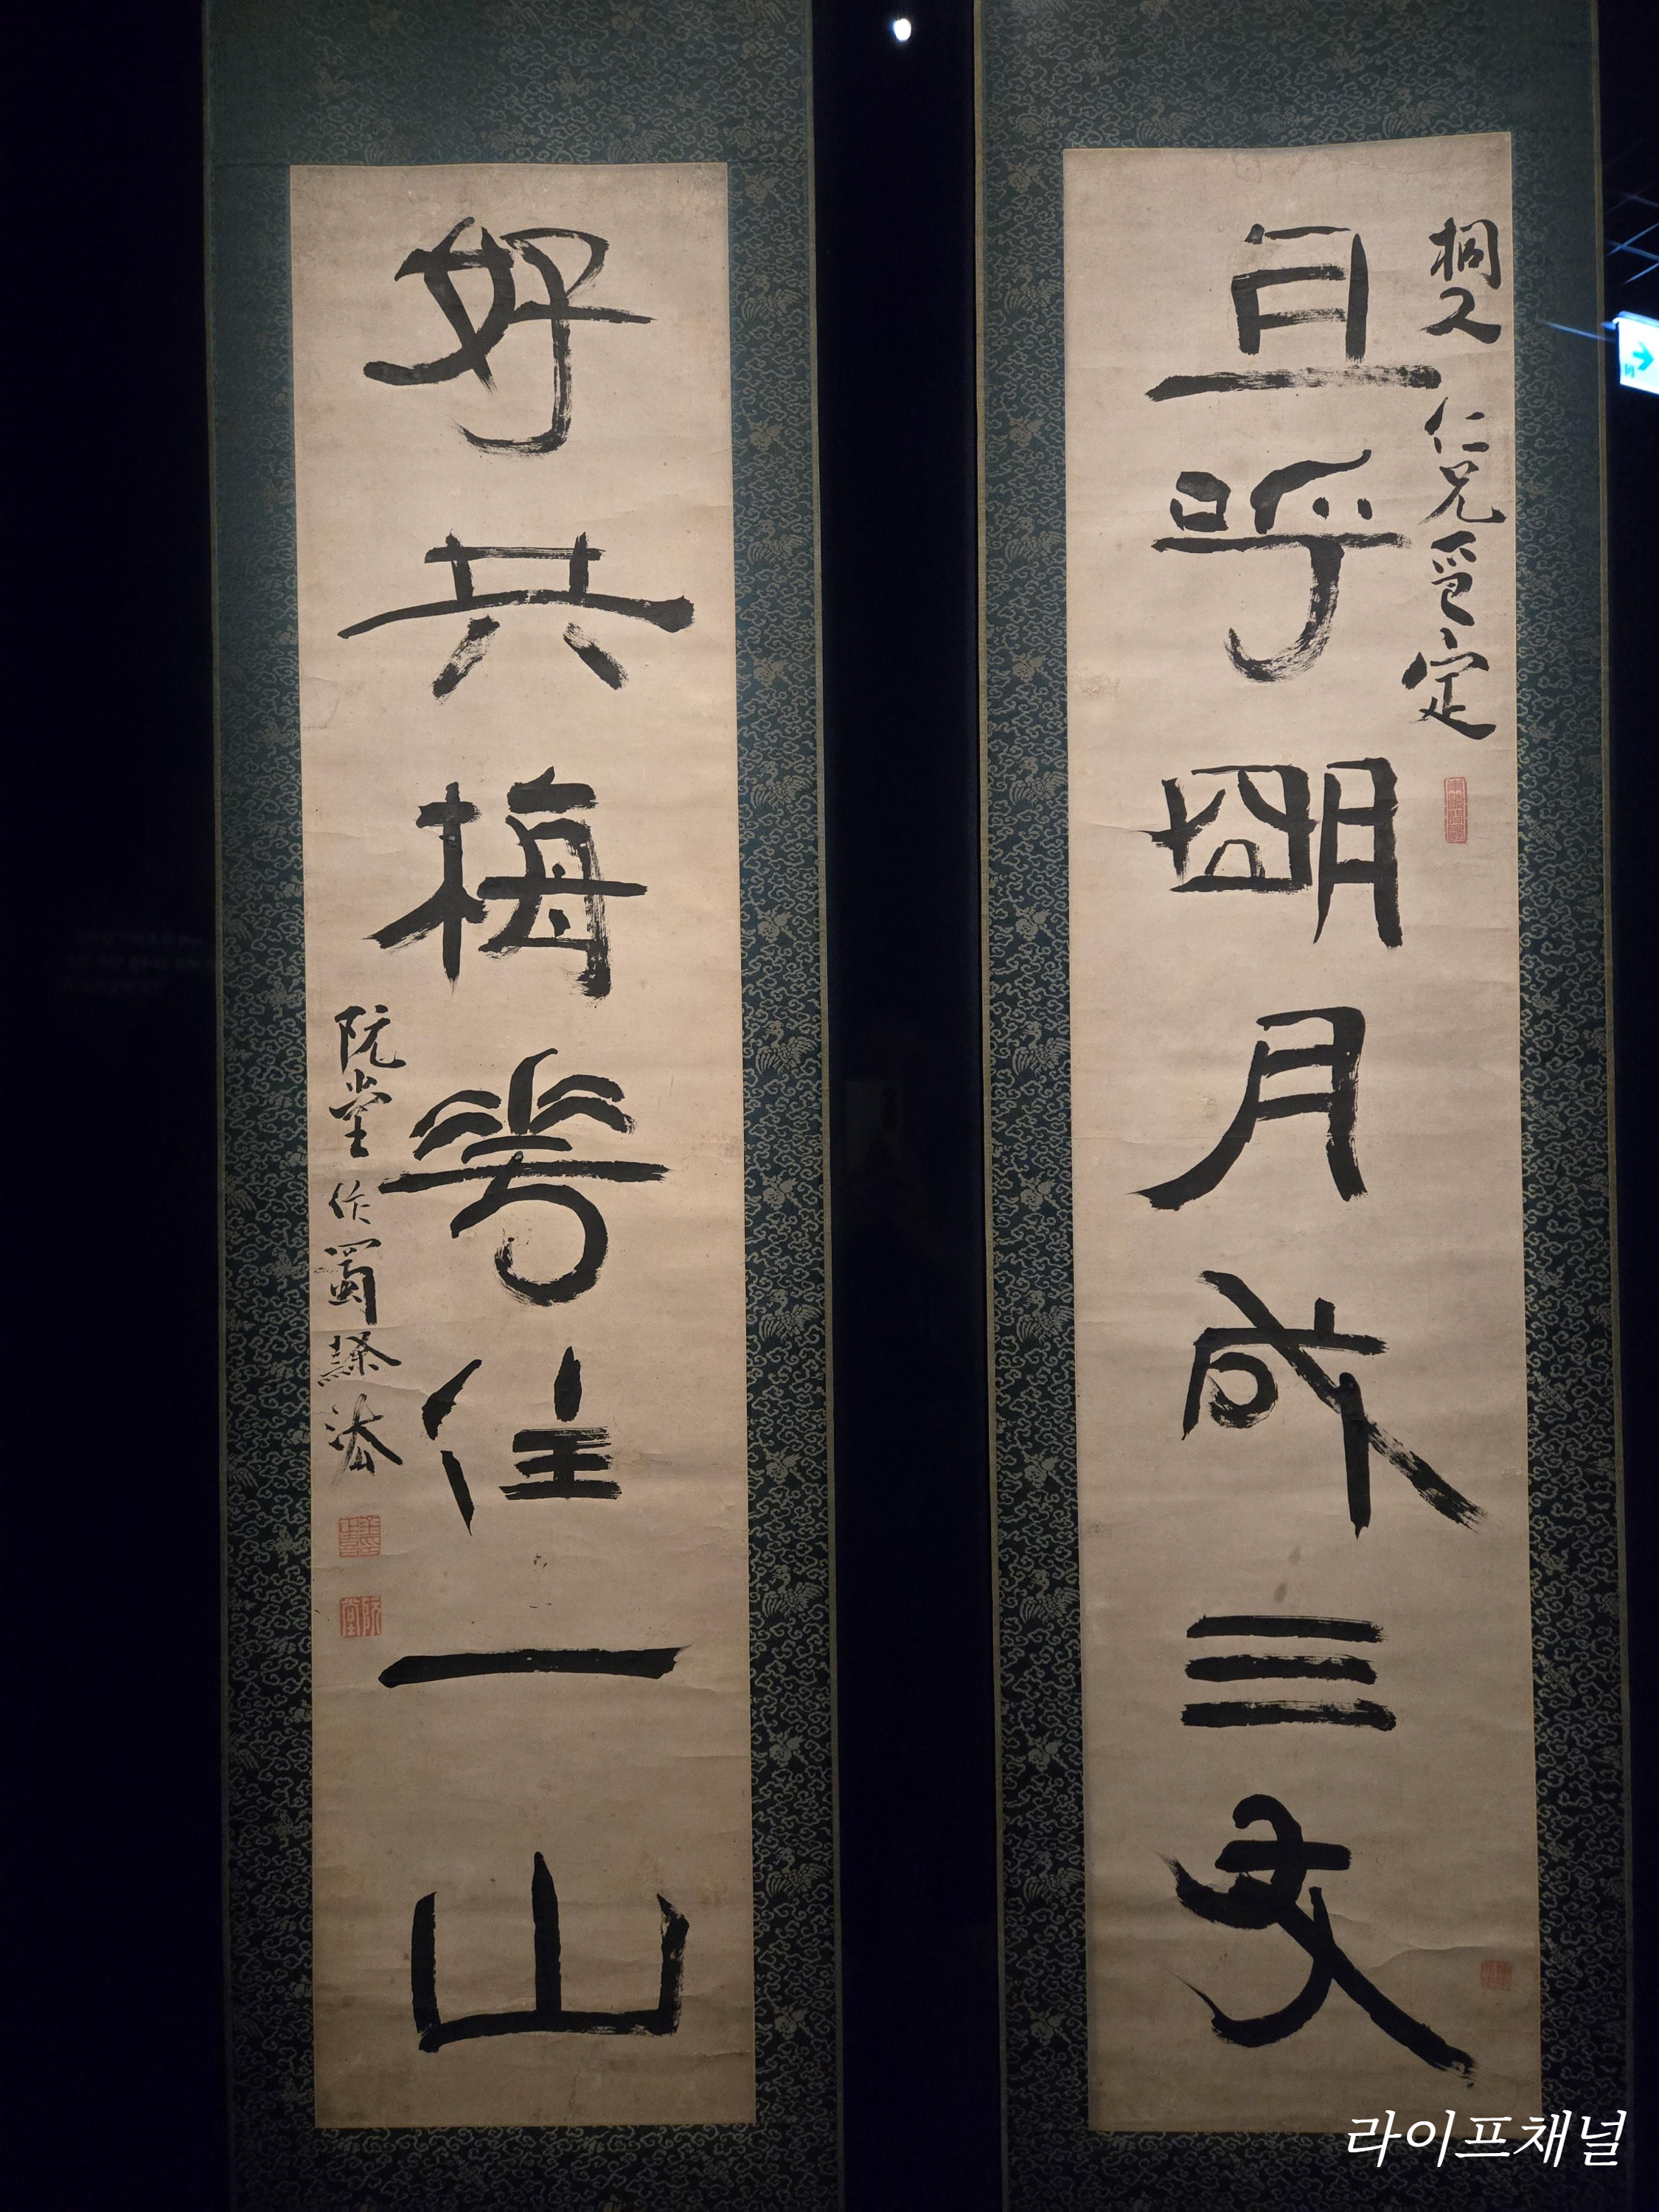 桐人仁兄定
且呼明月成三友
好共梅花住一山
阮堂作蜀隸法
阮堂
라이프채널